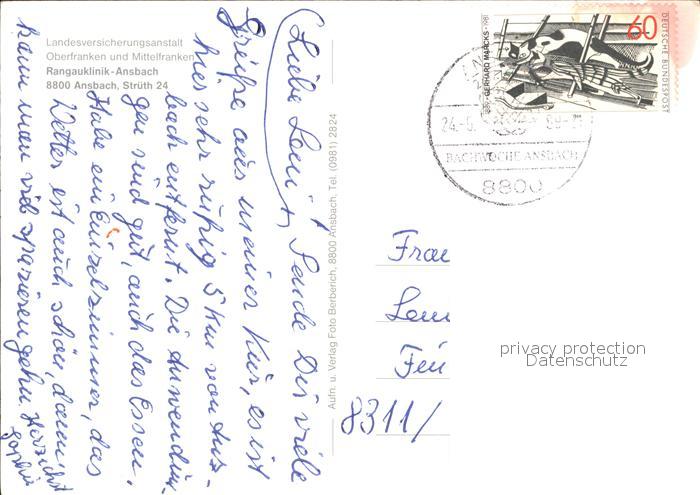 Landesversicherungsanstalt
Oberfranken und Mittelfranken
Rangauklinik-Ansbach
8800 Ansbach, Strüth 24
Liebe Leni! Sende Dir viele
Grüße aus meiner Kur, es ist
hier sehr ruhig 5 km von Ans-
bach entfernt. Die Anwendun-
gen sind gut, auch das Essen.
Habe ein Einzelzimmer, das
Wetter ist auch schön, dann
kann man viel spazieren gehn. Herzlichst
Aufn. u. Verlag Foto Berberich, 8800 Ansbach, Tel. (0981) 2824
60
DEUTSCHE BUNDESPOST
1889 GERHARD MARCKS 1981
24.-5.
BACHWOCHE ANSBACH
8800
Frau
8311/
privacy protection
Datenschutz